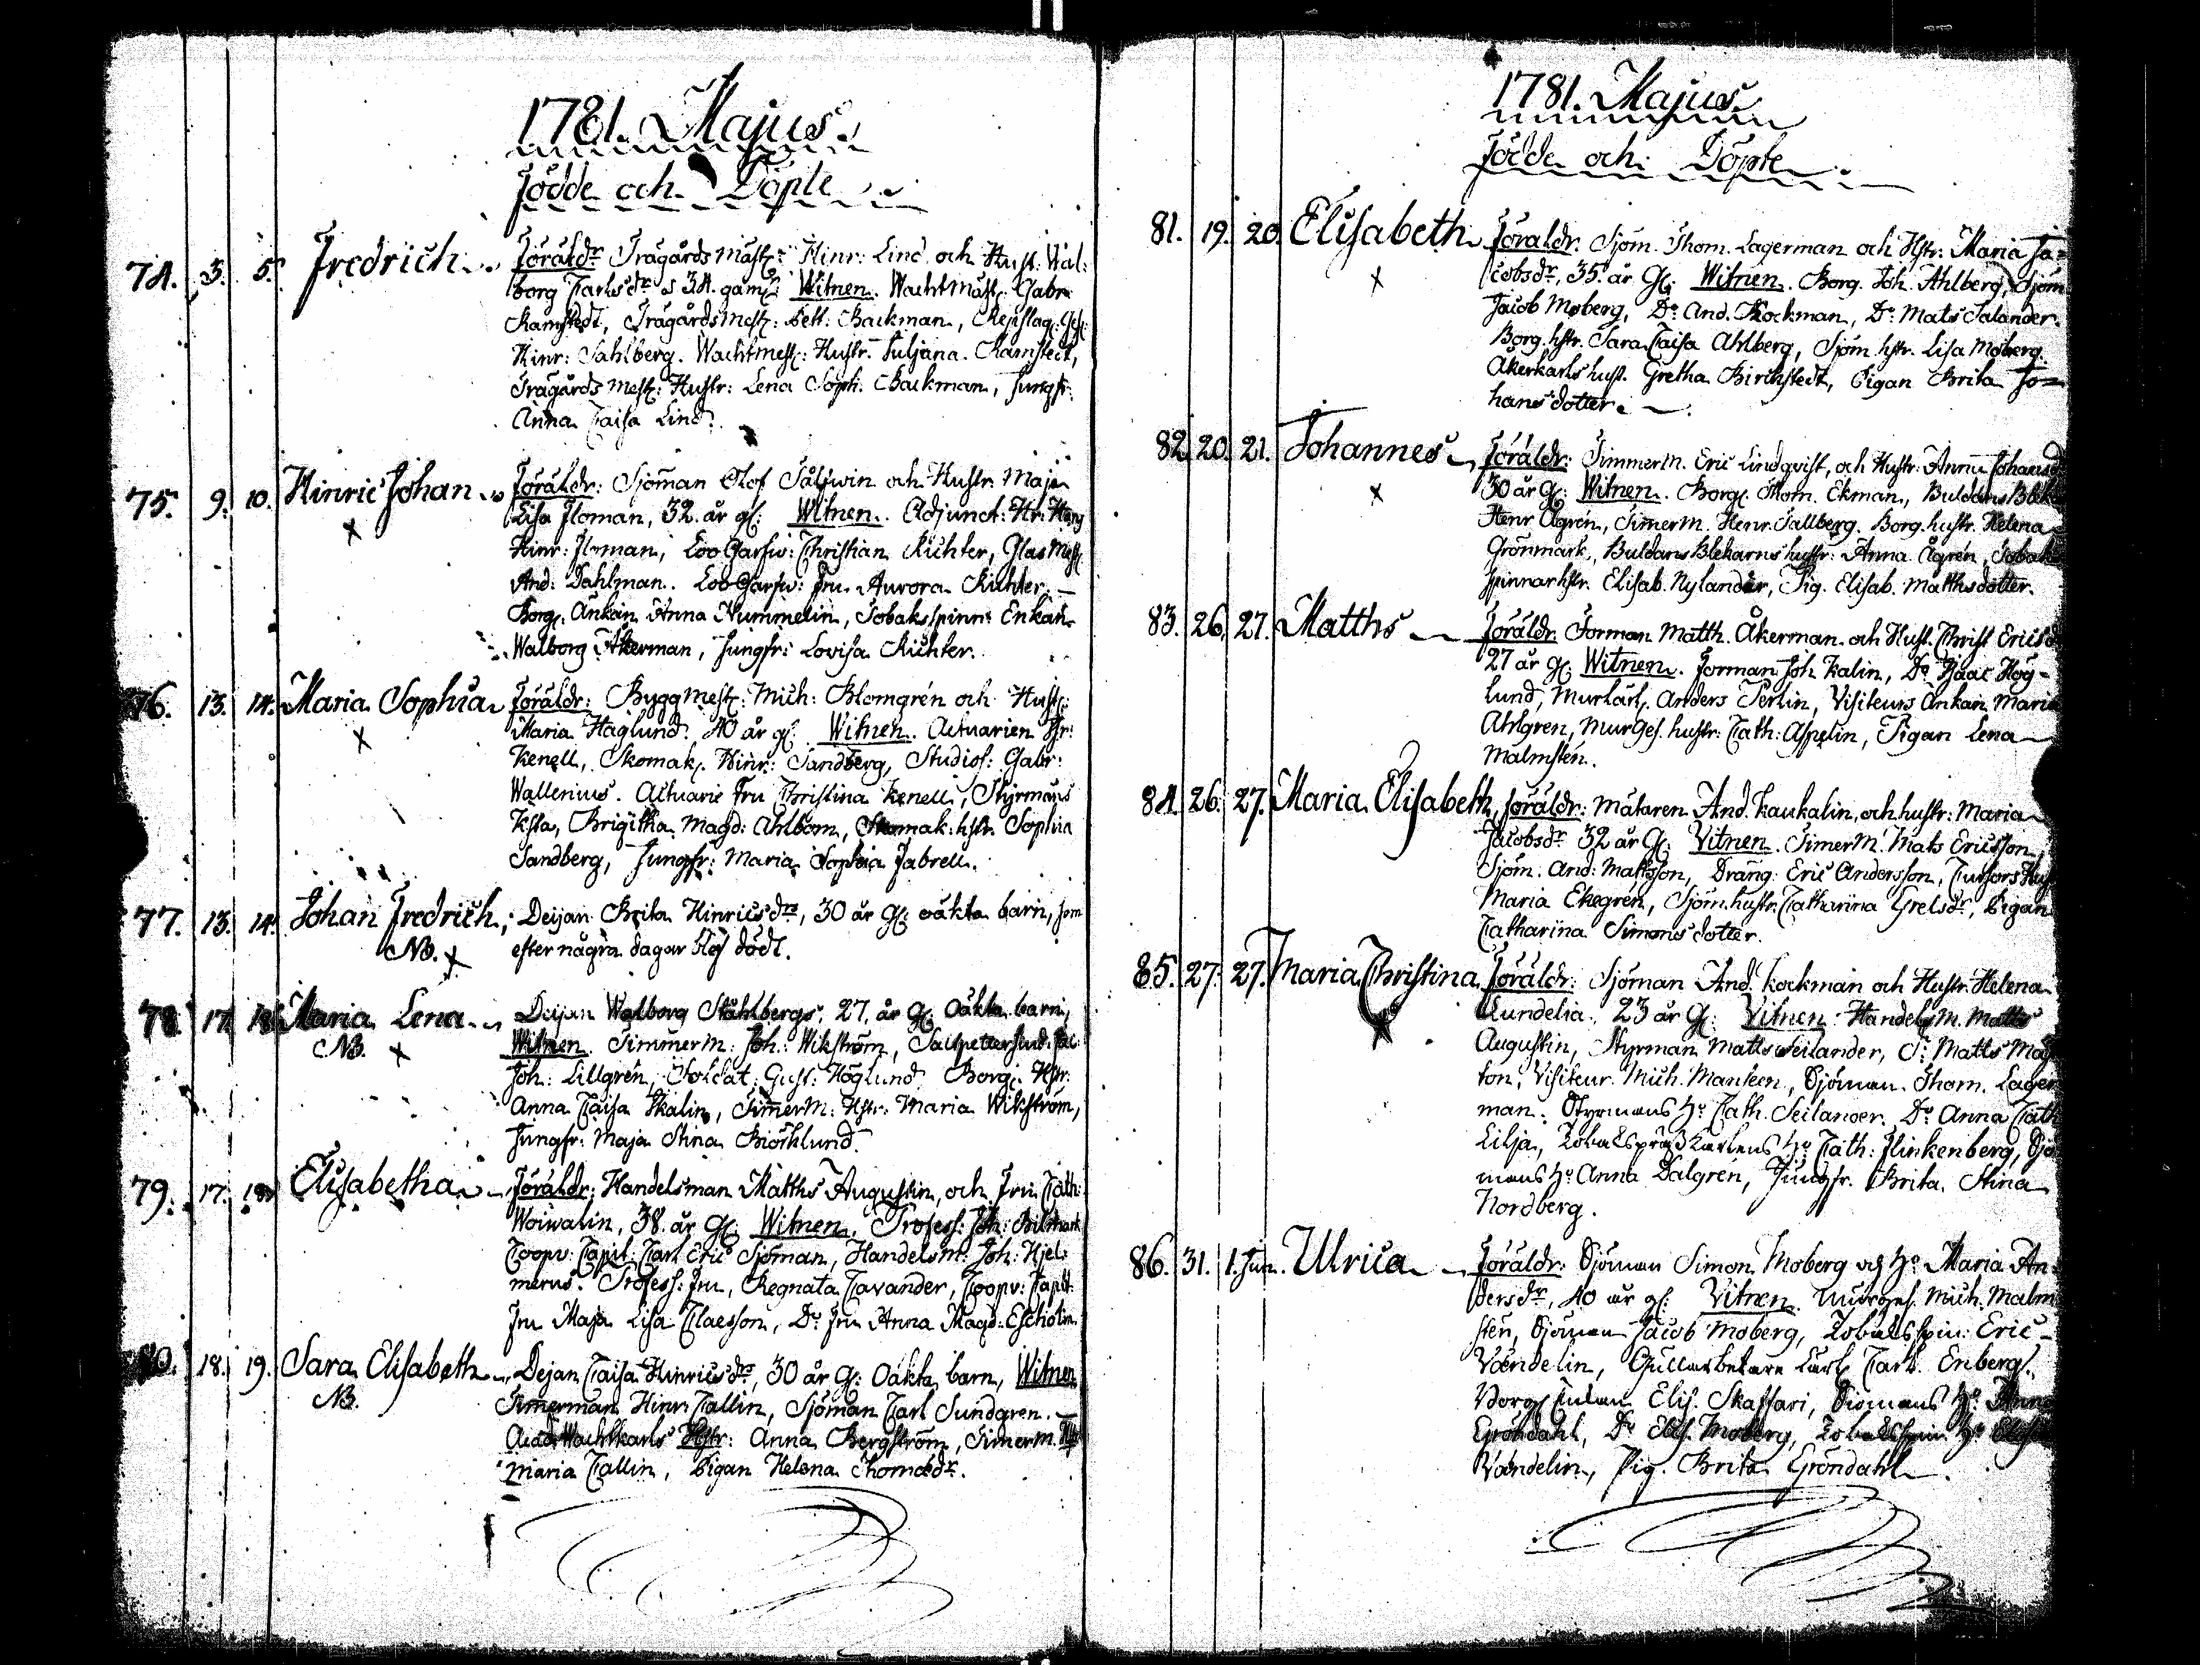 1781. Majus.
Födde och Döpte
74. 3. 5. Fredrich Föräldr. Trägårds Mäst: Hinr: Lind och Hust: Wal-
borg Carlsdr 34. gam: Witnen. Wachtmäst: Gabr
Ramstedt, Trägårds Mest: Bett: Backman, Repslag. Ges:
Hinr: Sahlberg. Wachtmest: Hustr. Juljana Ramstedt,
Trägårds Mest: Hustr: Lena Soph: Backman, Jungfr:
Anna Caisa Lind.
75. 9. 10. Hinric Johan Föräldr: Sjöman Olof Saltwin och Hustr: Maja
Lisa Floman, 32. år gl: Witnen. Adjunct: Hr:
Hinr: Floman, Christian Richter, Glas Mest
And: Dahlman. Fru Aurora Richter
Borg: Ankan Anna Nummelin, Tobaks spinn: Enkan
Walborg Åkerman, Jungfr: Lovisa Richter.
76. 13. 14. Maria Sophia Föräldr: Byggmest: Mich: Blomgrén och Hustr:
Maria Haglund 40 år gl: Witnen. Actuarien Hr:
Kenell, Skomak. Hinr: Sandberg, Studios: Gabr:
Wallerius. Actuarie Fru Christina Kenell, Styrmans
Brigitha Magd: Ahlbom, Skomak: hstr. Sophia
Sandberg, Jungfr: Maria Sophia Fabrell.
77. 13. 14. Johan Fredrich; Deijan Brita Hinricsdr, 30 år Gl: oäkta barn, som
NB. efter några dagar blef dödt.
78 17. 18 Maria Lena Deijan Walborg Ståhlbergs, 27. år Gl: Oäkta barn,
NB. Witnen. Timmerm: Joh: Wikström,
Joh: Lillgrén, Soldat: Gust: Höglund Borg: Hstr:
Anna Caisa Skalin, Timmerm: Hstr: Maria Wikström,
Jungfr: Maja Stina Biörklund.
79. 17. 18 Elisabetha Föräldr: Handelsman Matths Augustin, och Fru Cath:
Woiwalin, 38. år Gl: Witnen. Profess: Joh: Bilmark
Coopv: Capit: Carl Eric Sjöman, Handelsm: Joh: Hjel-
merus. Profess: Fru, Regnata Cavander, Coopv: Capit:
Fru Maja Lisa Claesson, Do Fru Anna Magd: Escholin
80. 18. 19. Sara Elisabeth Dejan Caisa Hinricsdr, 30 år Gl: Oäkta barn, Witnen
NB. Timerman Hinr: Callin, Sjöman Carl Sundgren.
Hstr: Anna Bergström, Timerm.
Maria Callin, Pigan Helena Thomædr.
1781. Majus.
Födde och Döpte
81. 19. 20. Elisabeth Föraldr. Sjöm. Thom. Lagerman och Hstr: Maria Ja-
cobsdr, 35. år Gl: Witnen. Borg. Joh. Ahlberg, Sjöm
Jacob Moberg, Do And. Kockman, Do Mats Salander.
Borg. hstr. Sara Caisa Ahlberg, Sjöm. hstr. Lisa Moberg.
Åkerkarls hust. Gretha Birckstedt, Pigan Brita Jo-
hansdotter.
82. 20. 21. Johannes Föräldr: Timmerm. Eric Lindqvist, och Hustr: Anna Johansd
30 år Gl: Witnen. Borg. Thom. Ekman,
Henr Ågrén, Timerm. Henr. Sallberg. Borg. hustr. Helena
Grönmark, hustr: Anna Ågrén, Tobaks
spinnar hstr. Elisab. Nylander, Pig. Elisab. Matthsdotter.
83. 26. 27. Matths Föräldr. Forman Matth. Åkerman och Hust. Christ Ericsd
27 år Gl: Witnen. Forman Joh. Kalin, Do Isaac Hög-
lund, Murkarl. Anders Terlin, Visiteurs Ankan Maria
Ahlgren, MurGes. hustr: Cath: Aspelin, Pigan Lena
Malmstén.
84. 26. 27. Maria Elisabeth, Föräldr: Mätaren And. Kaukalin, och hustr: Maria
Jacobsdr 32 år Gl: Vitnen. Timerm. Mats Ericsson
Sjöm. And: Matsson, Dräng: Eric Andersson,
Maria Ekegrén, Sjöm. hustr. Catharina Grelsdr, Pigan
Catharina Simonsdotter.
85. 27. 27. Maria Christina Föräldr: Sjöman And. Kockman och Hustr. Helena
Rundelia, 23 år Gl: Vitnen Handelsm. Matths
Augustin, Styrman Matts Seilander, Matts
ton, Visiteur. Mich. Manseen, Sjöman. Thom. Lager-
man. Styrmans Ho Cath. Seilander. Do Anna Cath
Lilja, Ho Cath: Flinkenberg, Sjö
mans Ho Anna Dalgrén, Jungfr. Brita Stina
Nordberg.
86. 31. 1. Jun. Ulrica Föräldr: Sjöman Simon Moberg och Ho Maria An-
dersdr, 40 år gl: Vitnen. Murges. Mich. Malm
sten, Sjöman Jacob Moberg, Tobaksspin: Eric
Vændelin, Carl Enberg.
Borg Enkan Elis. Skaffari, Siömans Ho Anna
Gröndahl, Do Elis. Moberg, Tobaksspin Ho
Vændelin, Pig. Brita Gröndahl